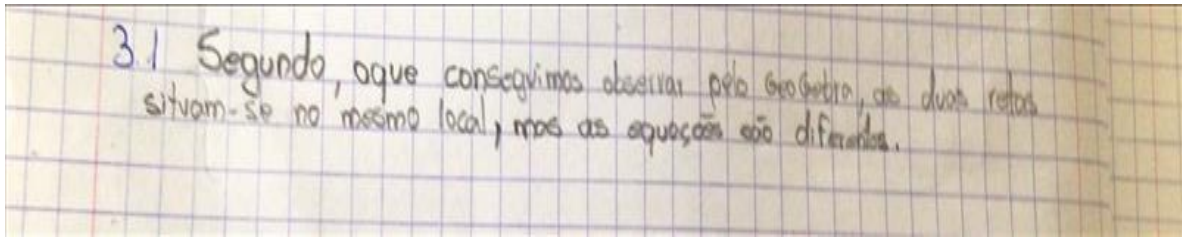 3.1 Segundo, oque conseguimos observar pelo GeoGebra, as duas retas
situam-se no mesmo local, mas as equações são diferentes.